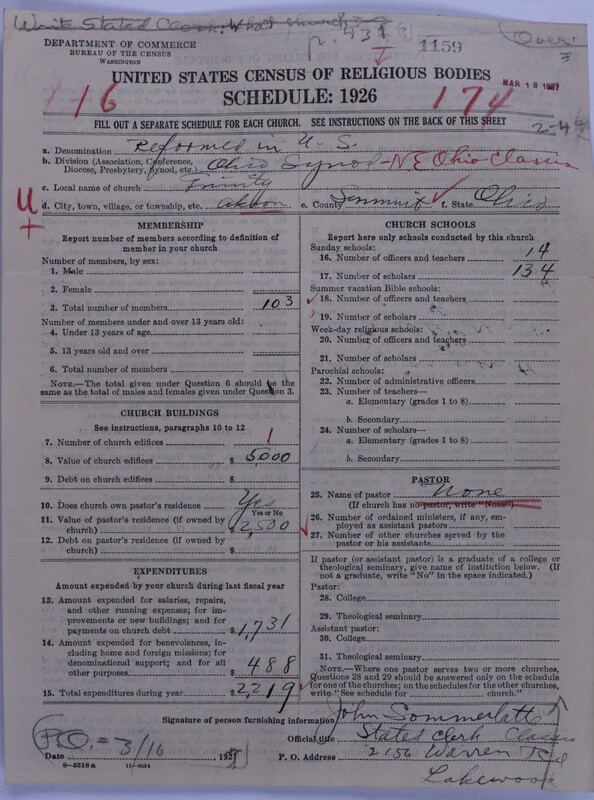 Write Stated Clerk. What church is
p. 431
1159
Over!
DEPARTMENT OF COMMERCE
BUREAU OF THE CENSUS
WASHINGTON
UNITED STATES CENSUS OF RELIGIOUS BODIES
MAR 18 1927
116
SCHEDULE: 1926
174
FILL OUT A SEPARATE SCHEDULE FOR EACH CHURCH. SEE INSTRUCTIONS ON THE BACK OF THIS SHEET
2-44
a. Denomination Reformed in U. S.
b. Division (Association, Conference, Diocese, Presbytery, Synod, etc.) Ohio Synod - N E Ohio Classis
c. Local name of church Trinity
d. City, town, village, or township, etc. Akron e. County Summit f. State Ohio
U
+
MEMBERSHIP
Report number of members according to definition of
member in your church
Number of members, by sex:
1. Male
2. Female
3. Total number of members 103
Number of members under and over 13 years old:
4. Under 13 years of age
5. 13 years old and over
6. Total number of members
NOTE.—The total given under Question 6 should be the
same as the total of males and females given under Question 3.
CHURCH BUILDINGS
See instructions, paragraphs 10 to 12
7. Number of church edifices 1
8. Value of church edifices $ 5,000
9. Debt on church edifices $
10. Does church own pastor's residence Yes
Yes or No
11. Value of pastor's residence (if owned by
church) $ 2,500
12. Debt on pastor's residence (if owned by
church) $
EXPENDITURES
Amount expended by your church during last fiscal year
13. Amount expended for salaries, repairs,
and other running expenses; for im-
provements or new buildings; and for
payments on church debt $ 1,731
14. Amount expended for benevolences, in-
cluding home and foreign missions; for
denominational support; and for all
other purposes $ 488
15. Total expenditures during year $ 2,219
CHURCH SCHOOLS
Report here only schools conducted by this church
Sunday schools:
16. Number of officers and teachers 14
17. Number of scholars 134
Summer vacation Bible schools:
18. Number of officers and teachers
19. Number of scholars
Week-day religious schools:
20. Number of officers and teachers
21. Number of scholars
Parochial schools:
22. Number of administrative officers
23. Number of teachers—
a. Elementary (grades 1 to 8)
b. Secondary
24. Number of scholars—
a. Elementary (grades 1 to 8)
b. Secondary
PASTOR
25. Name of pastor None
(If church has no pastor, write "None")
26. Number of ordained ministers, if any, em-
ployed as assistant pastors
27. Number of other churches served by the
pastor or his assistants
If pastor (or assistant pastor) is a graduate of a college or
theological seminary, give name of institution below. (If
not a graduate, write "No" in the space indicated.)
Pastor:
28. College
29. Theological seminary
Assistant pastor:
30. College
31. Theological seminary
NOTE.—Where one pastor serves two or more churches,
Questions 28 and 29 should be answered only on the schedule
for one of the churches; on the schedules for the other churches,
write "See schedule for church."
Signature of person furnishing information John Sommerlatte
Official title Stated Clerk Classis
P.O. = 3/16
Date 192
P. O. Address 2156 Warren Rd
8—5518 a 11—9034
Lakewood